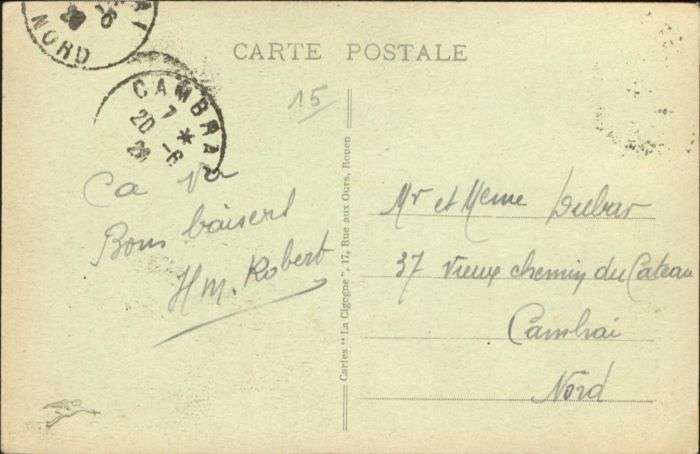 CARTE POSTALE
NORD
-6
CAMBRAI
7 *
20 -6
15
Ca va
Bons baisers
HM. Robert
Cartes "La Cigogne", 17, Rue aux Ours, Rouen
Mr et Meme Dubar
37 Vieux chemin du Cateau
Cambrai
Nord